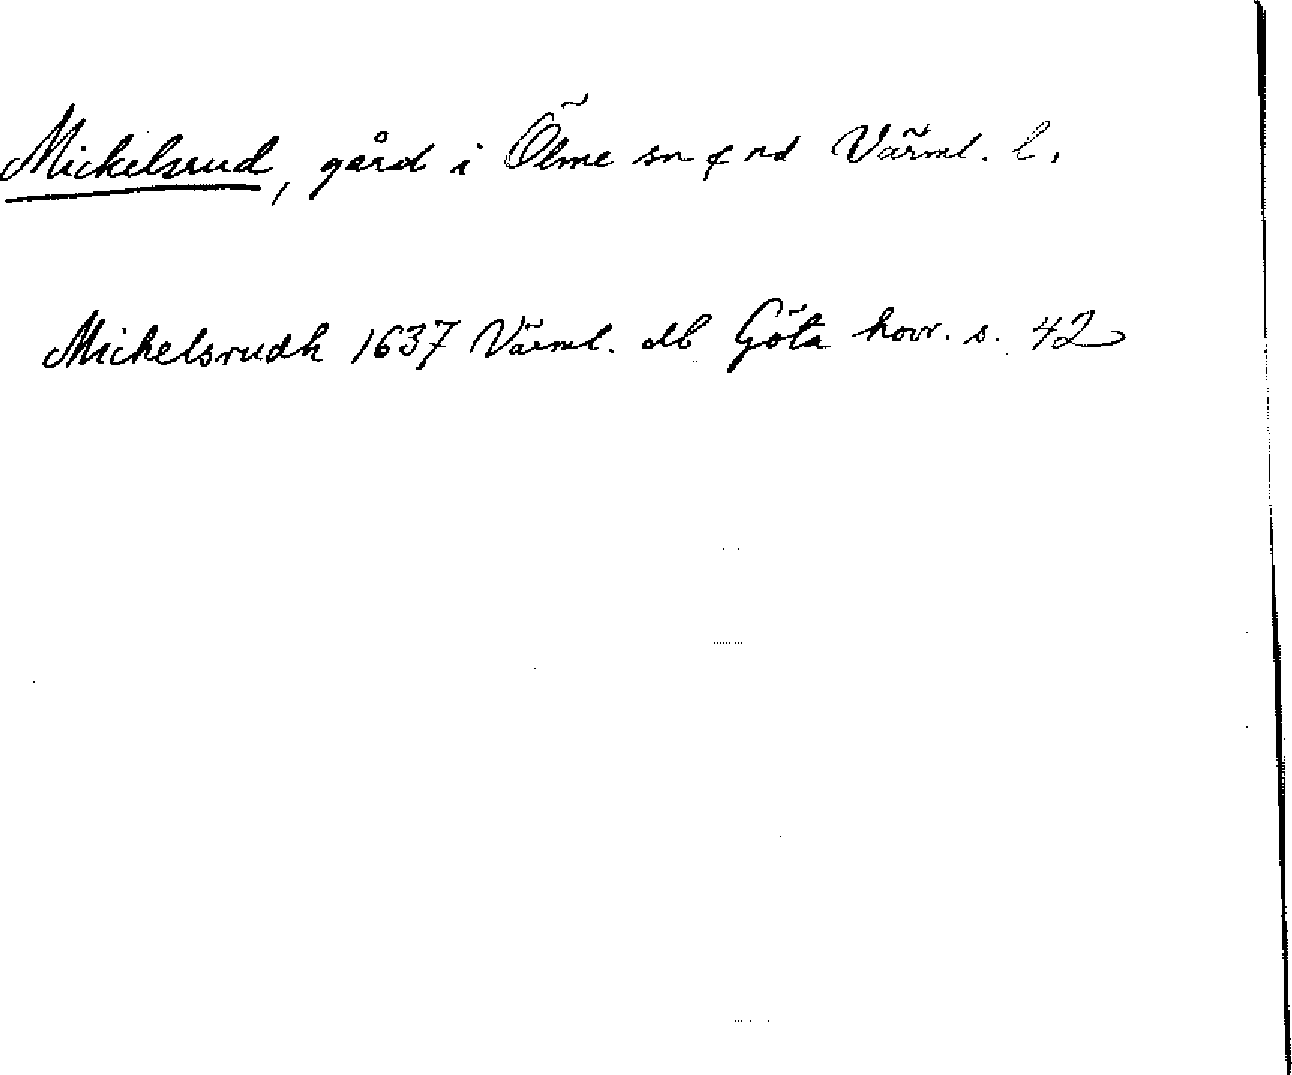 Mickelsrud, gård i Ölme sn & hd Värml. l.
Michelsrudh 1637 Värml. db Göta hovr. s. 42